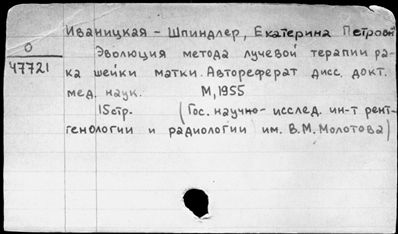 Иваницкая - Шпиндлер, Екатерина Петровн
О
47721
Эволюция метода лучевой терапии ра-
ка шейки матки. Автореферат дисс. докт.
мед. наук. М, 1955
15стр. (Гос. научно-исслед. ин-т рент-
генологии и радиологии им. В.М. Молотова)